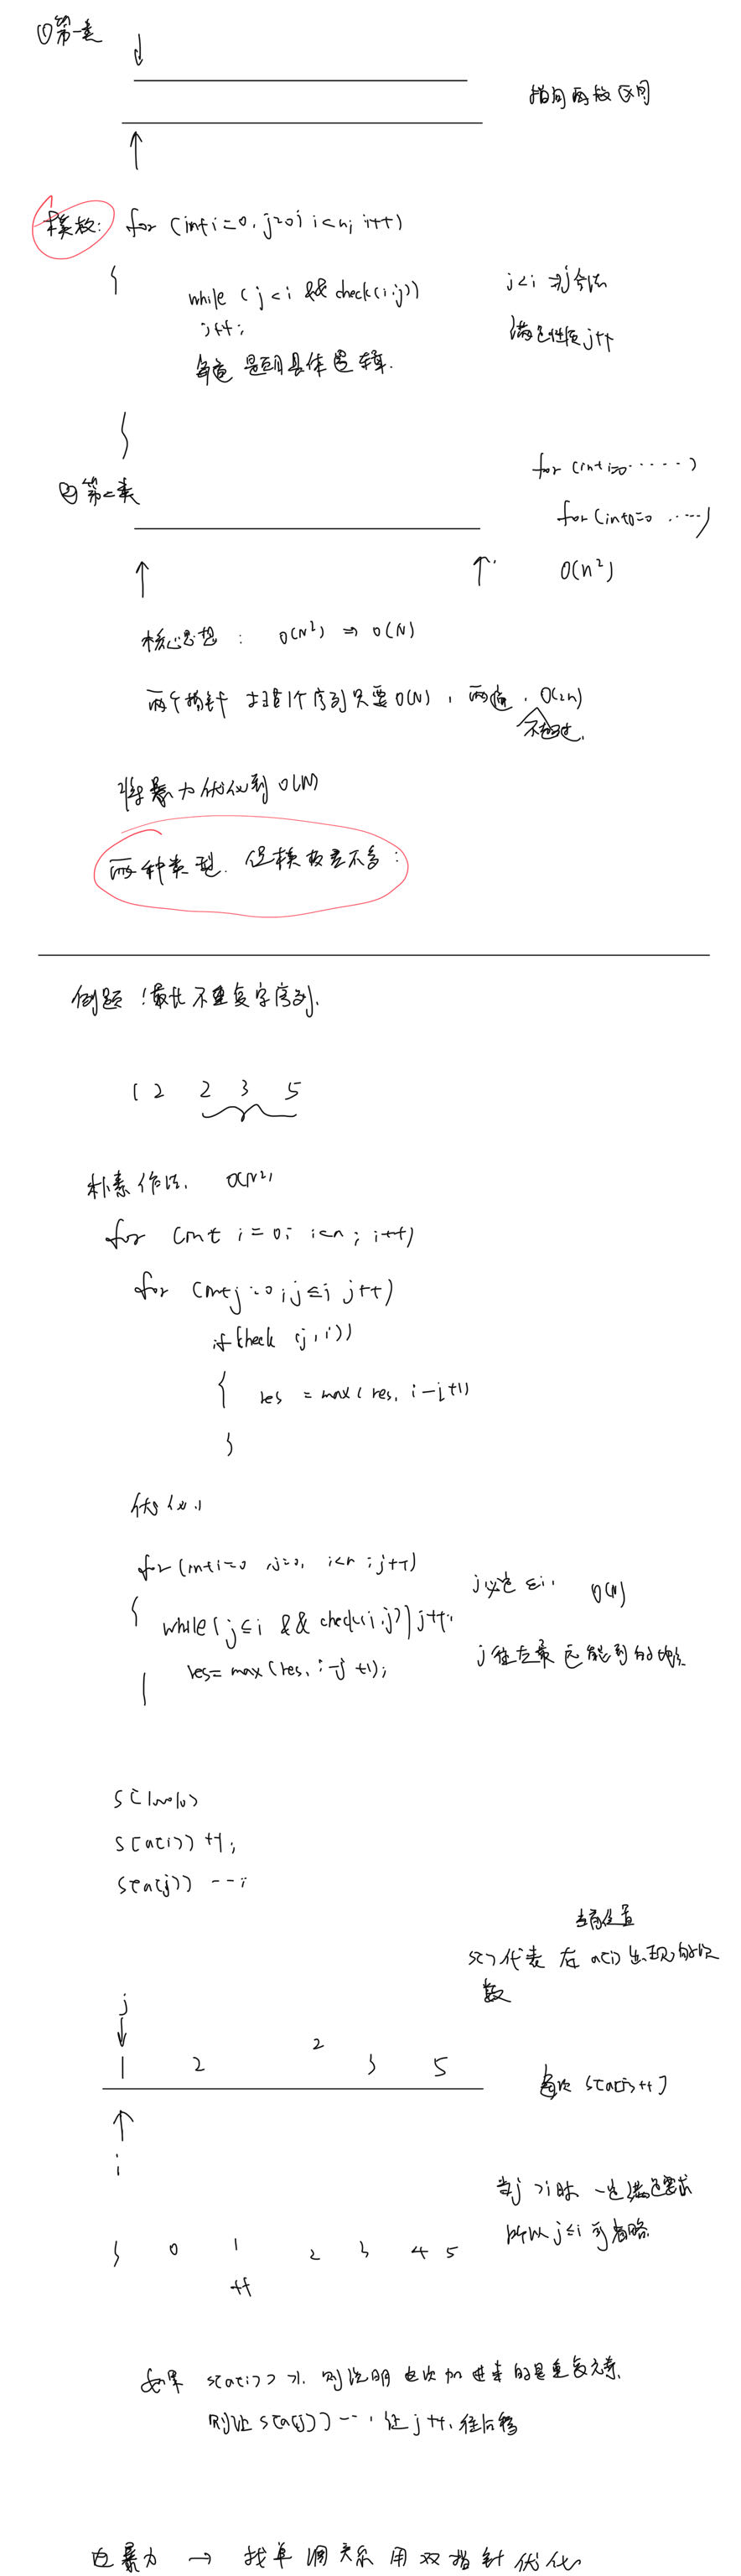 ①第一类
指向两段区间
模板: for (int i=0, j=0; i<n; i++)
{
while (j<i && check(i,j))
j++;
j<i ⇒ j合法
满足性质j++
每道题目具体逻辑.
}
②第二类
for (int i=0······)
for (int j=0 ·····)
O(n²)
核心思想: O(N²) ⇒ O(N)
两个指针 扫描1个序列只要O(N), 两遍, O(2n)
不超过.
将暴力优化到O(N)
两种类型. 但模板差不多:
例题:最长不重复子序列.
1 2 2 3 5
朴素作法. O(N²)
for (int i=0; i<n; i++)
for (int j=0; j≤i j++)
if (check (j,i))
{ res = max(res, i-j+1)
}
优化:
for (int i=0 ,j=0, i<n; j++)
{ while (j≤i && check(i,j)) j++;
res = max(res, i-j+1);
}
j必定≤i, O(N)
j往左最远能到的地方
S[a[i]]++;
S[a[j]]--;
当前位置
S[]代表 在 a[i]出现的次
数
j
↓
1 2 2 3 5
↑
i
当j>i时 一定满足要求
所以j≤i可省略
0 1 2 3 4 5
++
如果 S[a[i]]>1. 则说明这次加进来的是重复元素.
则让S[a[j]]--, 让j++, 往后移
暴力 → 找单调关系用双指针优化